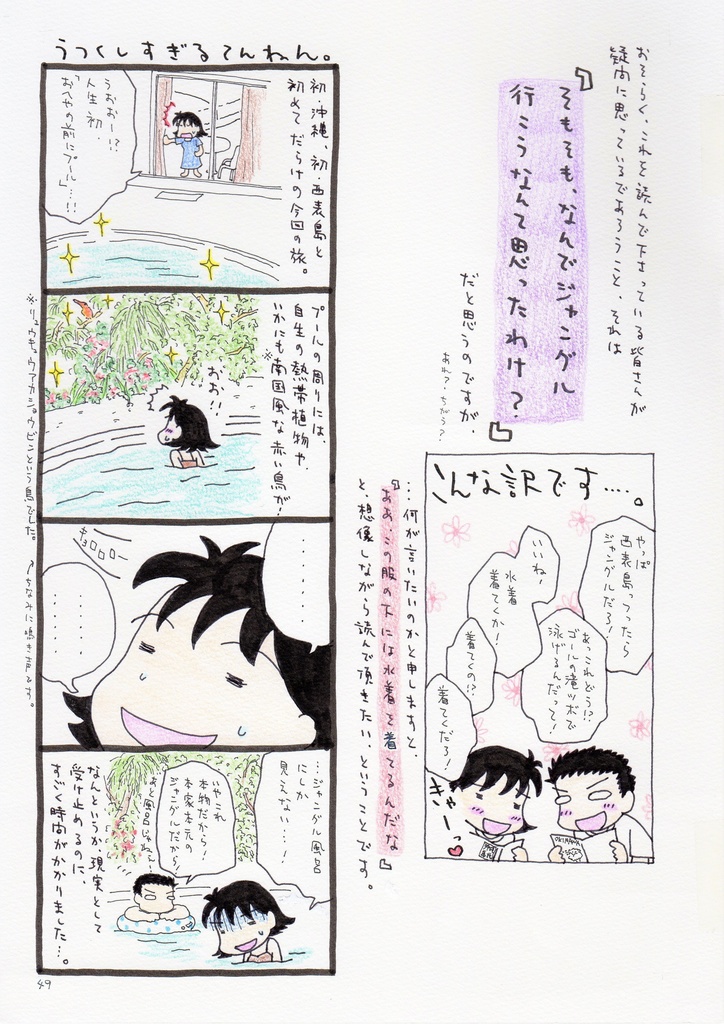 おそらく、これを読んで下さっている皆さんが
疑問に思っているであろうこと、それは
『そもそも、なんでジャングル
行こうなんて思ったわけ？』
だと思うのですが、
あれ？ちがう？
こんな訳です‥‥。
やっぱ
西表島っつったら
ジャングルだろ！
いいね！
水着
着てくか！
あっこれどう!?
ゴールの滝ツボで
泳げるんだって！
着てくの!?
着てくだろ！
きゃーっ
…何が言いたいのかと申しますと、
『ああ、この服の下には水着を着てるんだな』
と、想像しながら読んで頂きたい、ということです。
うつくしすぎるてんねん。
初・沖縄、初・西表島と
初めてだらけの今回の旅。
うおおー!?
人生初
「おへやの前にプール」…!!
プールの周りには、
自生の熱帯植物や、
いかにも南国風な赤い鳥が！
※
おお!!
※リュウキュウアカショウビンという鳥でした。
↗ちなみに鳴き声です。
キョロロロ
……
……
…ジャングル風呂
にしか
見えない…！
いやこれ
本物だから！
本家本元の
ジャングルだから！
あと風呂じゃねーし！
なんというか、現実として
受け止めるのに、
すごく時間がかかりました…。
49